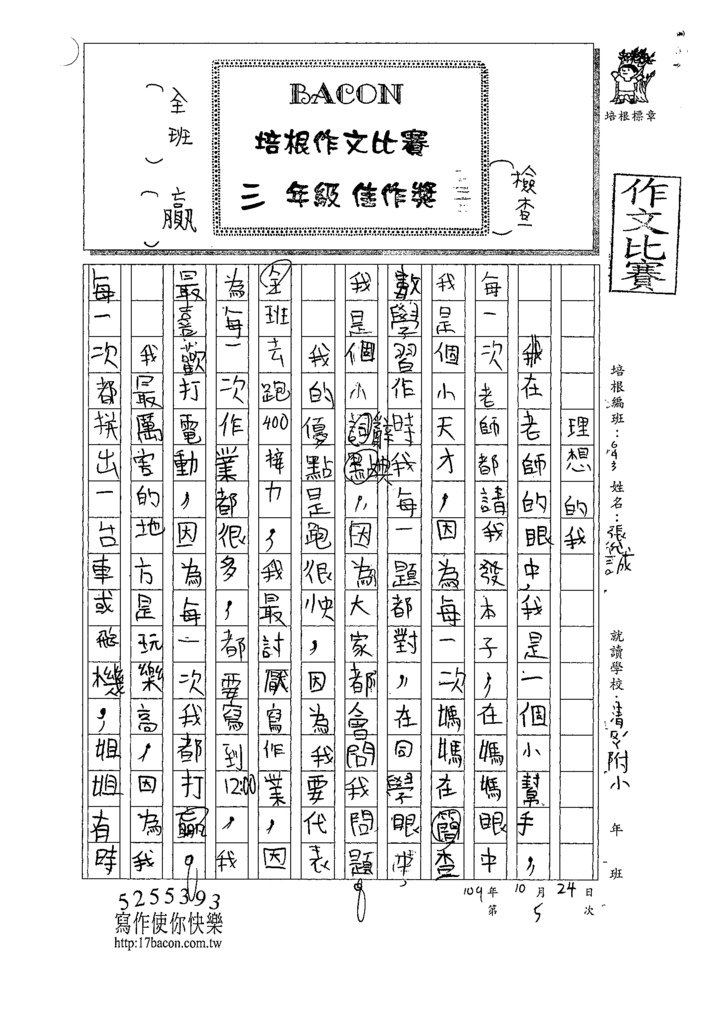 BACON
培根作文比賽
三 年級 佳作獎
檢查
全班
贏
培根標章
作文比賽
培根編班:643 姓名: 張 就讀學校: 清 附小 年 班
理想的我
我在老師的眼中,我是一個小幫手,
每一次老師都請我發本子,在媽媽眼中
我是個小天才,因為每一次媽媽在簡查
數學習作時我每一題都對,在同學眼中,
我是個小詞點,因為大家都會問我問題。
辭典
我的優點是跑很快,因為我要代表
全班去跑400接力,我最討厭寫作業,因
為每一次作業都很多,都要寫到12:00,我
最喜歡打電動,因為每一次我都打贏。
我最厲害的地方是玩樂高,因為我
每一次都拼出一台車或飛機,姐姐有時
109年10月24日
第5次
5255393
寫作使你快樂
http:17bacon.com.tw